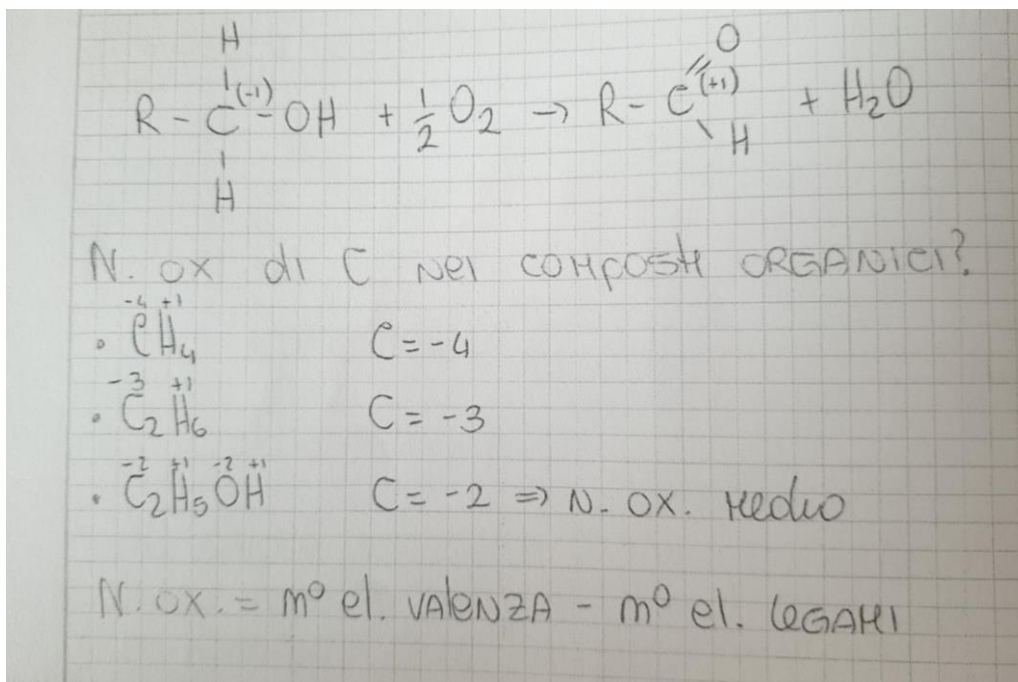 H
R - C(-1) - OH + 1/2 O2 → R - C(+1) =O + H2O
H
H
N. OX di C NEI COMPOSTI ORGANICI?
-4 +1
• CH4 C = -4
-3 +1
• C2H6 C = -3
-2 +1 -2 +1
• C2H5OH C = -2 ⇒ N. OX. MEDIO
N. OX. = n° el. VALENZA - n° el. LEGAMI